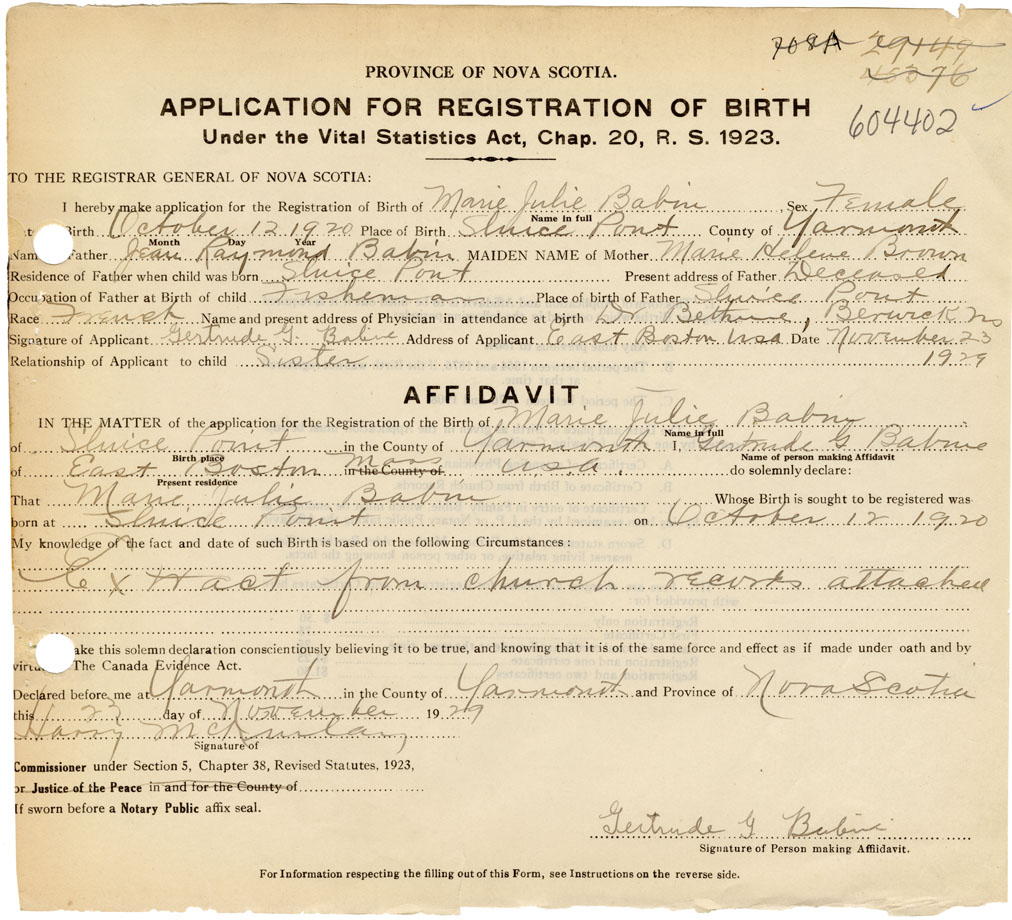 708A 29149
45376
PROVINCE OF NOVA SCOTIA.
APPLICATION FOR REGISTRATION OF BIRTH
604402
Under the Vital Statistics Act, Chap. 20, R. S. 1923.
TO THE REGISTRAR GENERAL OF NOVA SCOTIA:
I hereby make application for the Registration of Birth of Marie Julie Babin Sex Female
Name in full
Birth October 12 1920 Place of Birth Sluice Point County of Yarmouth
Month Day Year
Name Father Jean Raymond Babin MAIDEN NAME of Mother Marie Helene Brown
Residence of Father when child was born Sluice Point Present address of Father Deceased
Occupation of Father at Birth of child Fisherman Place of birth of Father Sluice Point
Race French Name and present address of Physician in attendance at birth Dr Bethune, Berwick NS
Signature of Applicant Gertrude G. Babine Address of Applicant East Boston USA Date November 23
Relationship of Applicant to child Sister 1929
AFFIDAVIT
IN THE MATTER of the application for the Registration of the Birth of Marie Julie Babin
Name in full
of Sluice Point in the County of Yarmouth I, Gertrude G Babine
Birth place Name of person making Affidavit
of East Boston Mass in the County of USA do solemnly declare:
Present residence
That Marie Julie Babin Whose Birth is sought to be registered was
born at Sluice Point on October 12 1920
My knowledge of the fact and date of such Birth is based on the following Circumstances:
Extract from church records attached
ake this solemn declaration conscientiously believing it to be true, and knowing that it is of the same force and effect as if made under oath and by
virtu The Canada Evidence Act.
Declared before me at Yarmouth in the County of Yarmouth and Province of Nova Scotia
this 23 day of November 1929
Harry
Signature of
Commissioner under Section 5, Chapter 38, Revised Statutes, 1923,
or Justice of the Peace in and for the County of
If sworn before a Notary Public affix seal.
Gertrude G Babine
Signature of Person making Affiidavit.
For Information respecting the filling out of this Form, see Instructions on the reverse side.